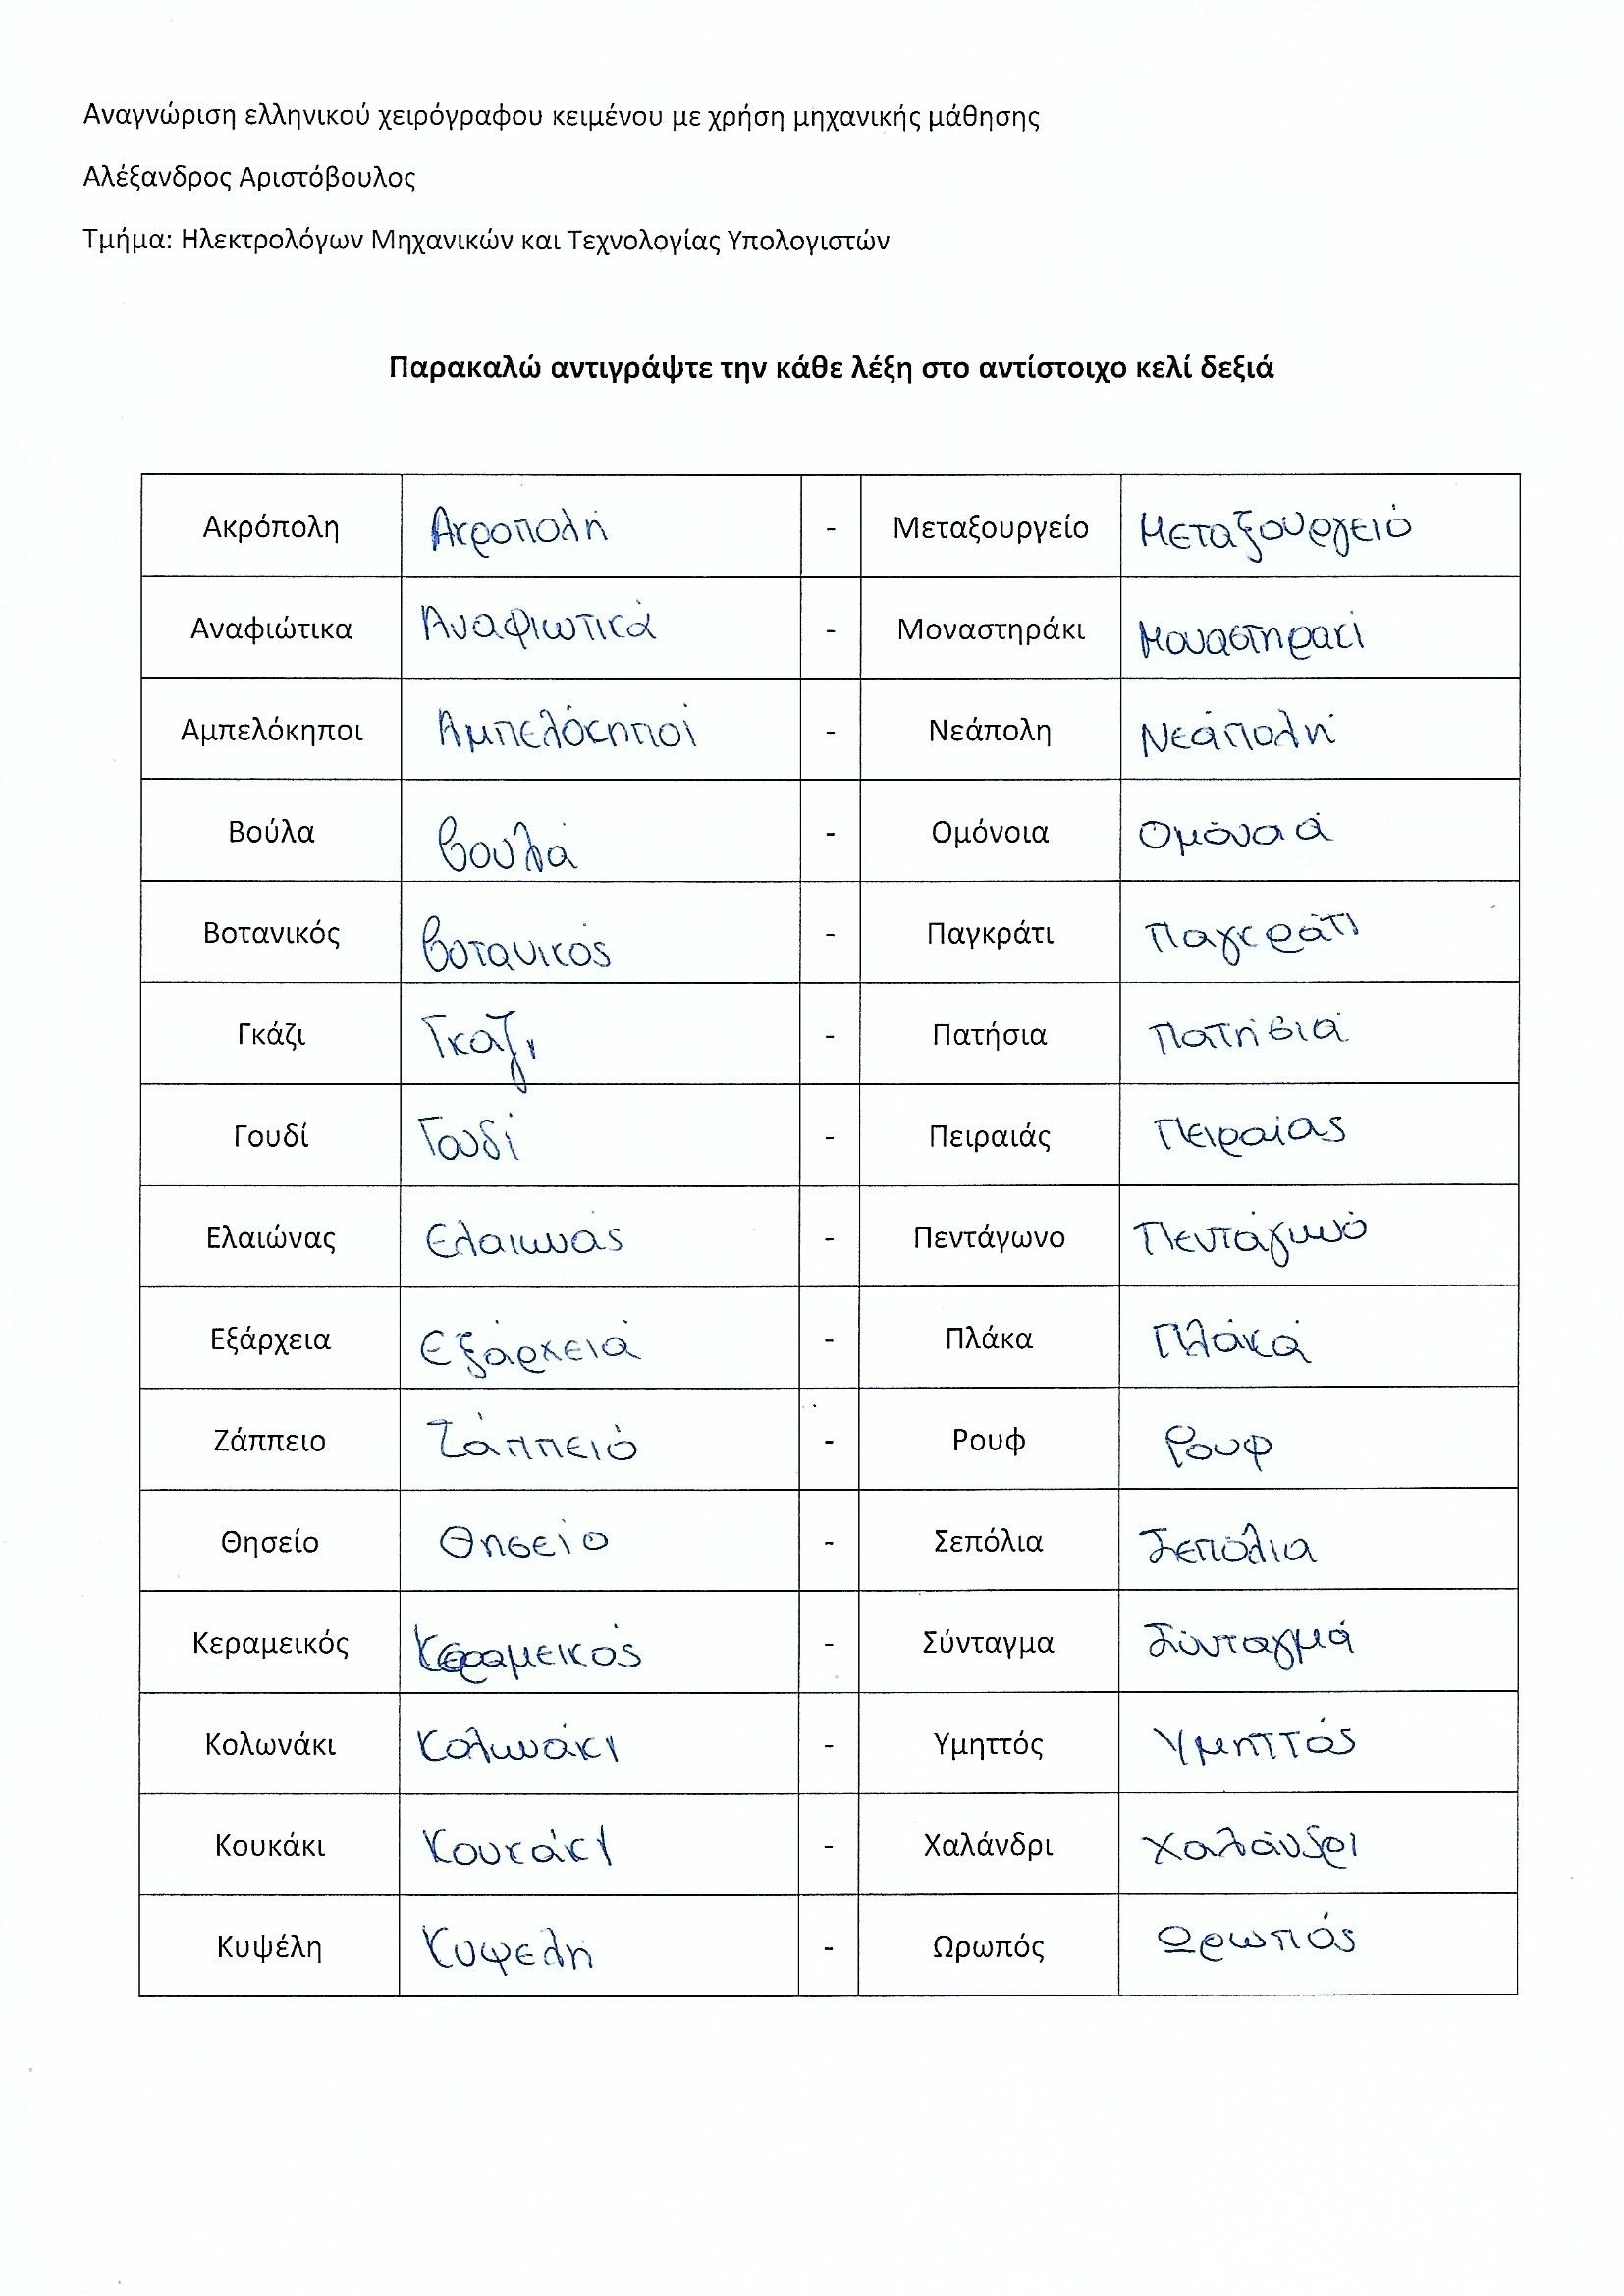 Αναγνώριση ελληνικού χειρόγραφου κειμένου με χρήση μηχανικής μάθησης
Αλέξανδρος Αριστόβουλος
Τμήμα: Ηλεκτρολόγων Μηχανικών και Τεχνολογίας Υπολογιστών
Παρακαλώ αντιγράψτε την κάθε λέξη στο αντίστοιχο κελί δεξιά
Ακρόπολη Ακροπολή - Μεταξουργείο Μεταξουργειό
Αναφιώτικα Αναφιωτικά - Μοναστηράκι Μοναστηρακί
Αμπελόκηποι Αμπελόκηποί - Νεάπολη Νεάπολή
Βούλα Βουλά - Ομόνοια Ομόνοιά
Βοτανικός Βοτανικός - Παγκράτι Παγκράτι
Γκάζι Γκαζι - Πατήσια Πατήσιά
Γουδί Γουδί - Πειραιάς Πειραίας
Ελαιώνας Ελαιωνάς - Πεντάγωνο Πεντάγωνό
Εξάρχεια Εξάρχειά - Πλάκα Πλάκά
Ζάππειο Ζάππειό - Ρουφ Ρουφ
Θησείο Θησείο - Σεπόλια Σεπόλια
Κεραμεικός Κεραμεικός - Σύνταγμα Σύνταγμά
Κολωνάκι Κολωνάκι - Υμηττός Υμηττός
Κουκάκι Κουκάκι - Χαλάνδρι Χαλάνδρι
Κυψέλη Κυψελή - Ωρωπός Ωρωπός